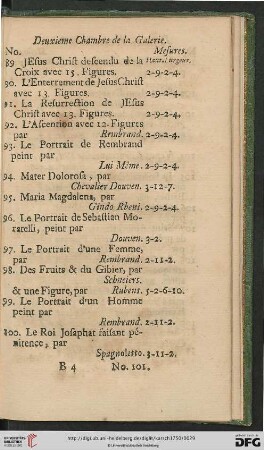 Deuxieme Chambre de la Galerie.
No. Mesures.
89 JEsus Christ descendu de la Haut. Largeur.
Croix avec 15. Figures. 2-9-2-4.
90. L'Enterrement de JesusChrist
avec 13. Figures. 2-9-2-4.
91. La Resurrection de JEsus
Christ avec 13. Figures. 2-9-2-4.
92. L'Ascention avec 12. Figures
par Rembrand. 2-9-2-4.
93. Le Portrait de Rembrand
peint par
Lui Même. 2-9-2-4.
94. Mater Dolorosa, par
Chevalier Douven. 3-12-7.
95. Maria Magdalena, par
Guido Rheni. 2-9-2-4.
96. Le Portrait de Sebastian Mo-
ratelli, peint par
Douven. 3-2.
97. Le Portrait d'une Femme,
par Rembrand. 2-11-2.
98. Des Fruits & du Gibier, par
Schneiers.
& une Figure, par Rubens. 5-2-6-10.
99. Le Portrait d'un Homme
peint par
Rembrand. 2-11-2.
100. Le Roi Josaphat faisant pé-
nitence, par
Spagnoletto. 3-11-2.
B 4 No. 101.
UNIVERSITÄTS-BIBLIOTHEK HEIDELBERG
http://digi.ub.uni-heidelberg.de/diglit/karsch1750/0029
© Universitätsbibliothek Heidelberg
gefördert durch die
DFG